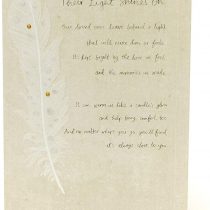 Their Light Shines On
Our loved ones leave behind a light
that will never dim or fade
It's kept bright by the love we feel
and the memories we made
It can warm us like a candle's glow
and help bring comfort, too
And no matter where you go you'll find
it's always close to you